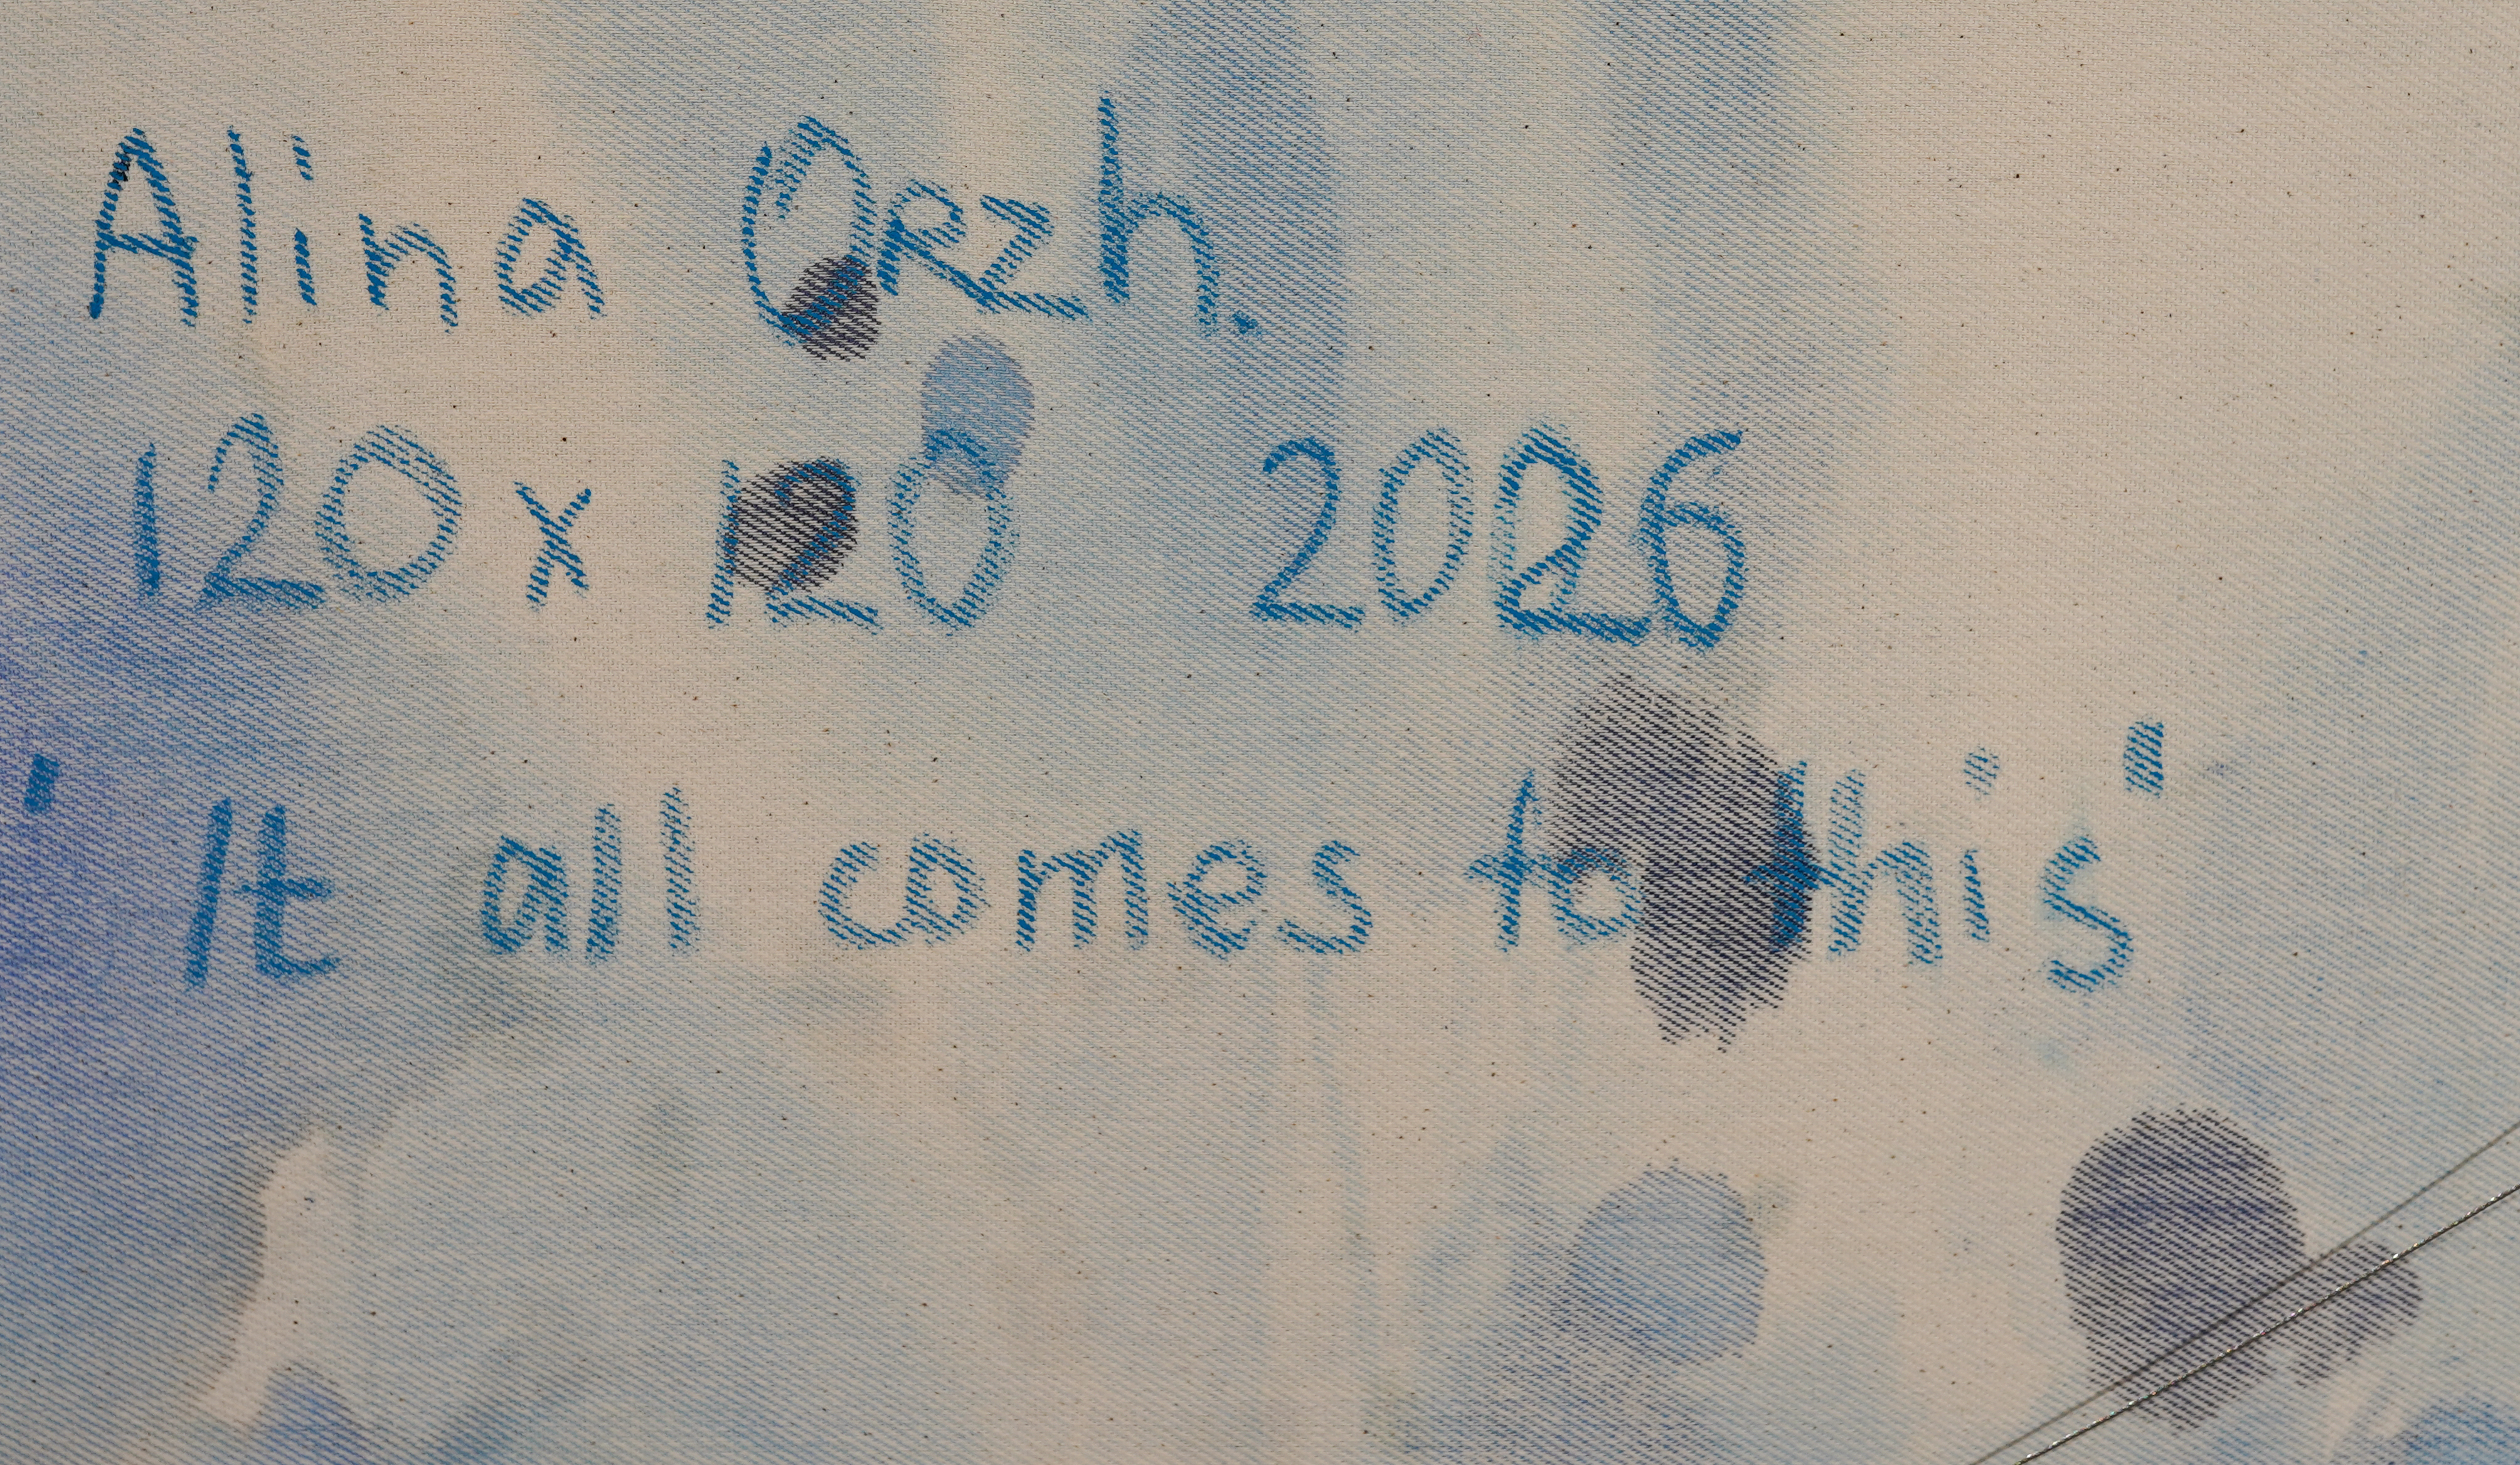 Alina Orzh.
120 x 120 2026
'It all comes to this'